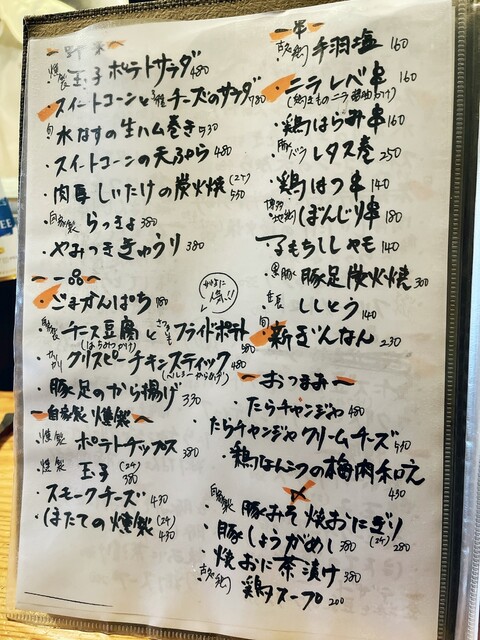 野菜
燻製 玉子ポテトサラダ 480
・スイートコーンと3種チーズのサラダ 780
旬 水なすの生ハム巻き 530
・スイートコーンの天ぷら 480
・肉厚しいたけの炭火焼 (2ケ) 550
・自家製 らっきょ 380
・やみつききゅうり 380
〜一品〜
・ごまかんぱち 980
女性に人気!!
自家製 チーズ豆腐とさつまフライドポテト 580
(はちみつかけ)
カリカリ クリスピーチキンスティック 480
・豚足のから揚げ 330
〜自家製燻製〜
・燻製 ポテトチップス 380
・燻製 玉子 (2ケ) 380
スモークチーズ 430
・ほたての燻製 (2ケ) 430
串
古処鶏 手羽塩 160
・ニラレバ串 160
・鶏はらみ串 160
豚バラ レタス巻 250
・鶏はつ串 140
博多地鶏 ぼんじり串 180
子もちししゃも 140
・黒豚 豚足炭火焼 300
・ししとう 140
・旬 新ぎんなん 230
〜おつまみ〜
・たらチャンジャ 480
たらチャンジャクリームチーズ 510
・鶏なんこつの梅肉和え 430
〆
自家製 豚みそ焼おにぎり (2ケ) 280
・豚しょうがめし 380
・焼おに茶漬け 380
古処鶏 鶏スープ 200